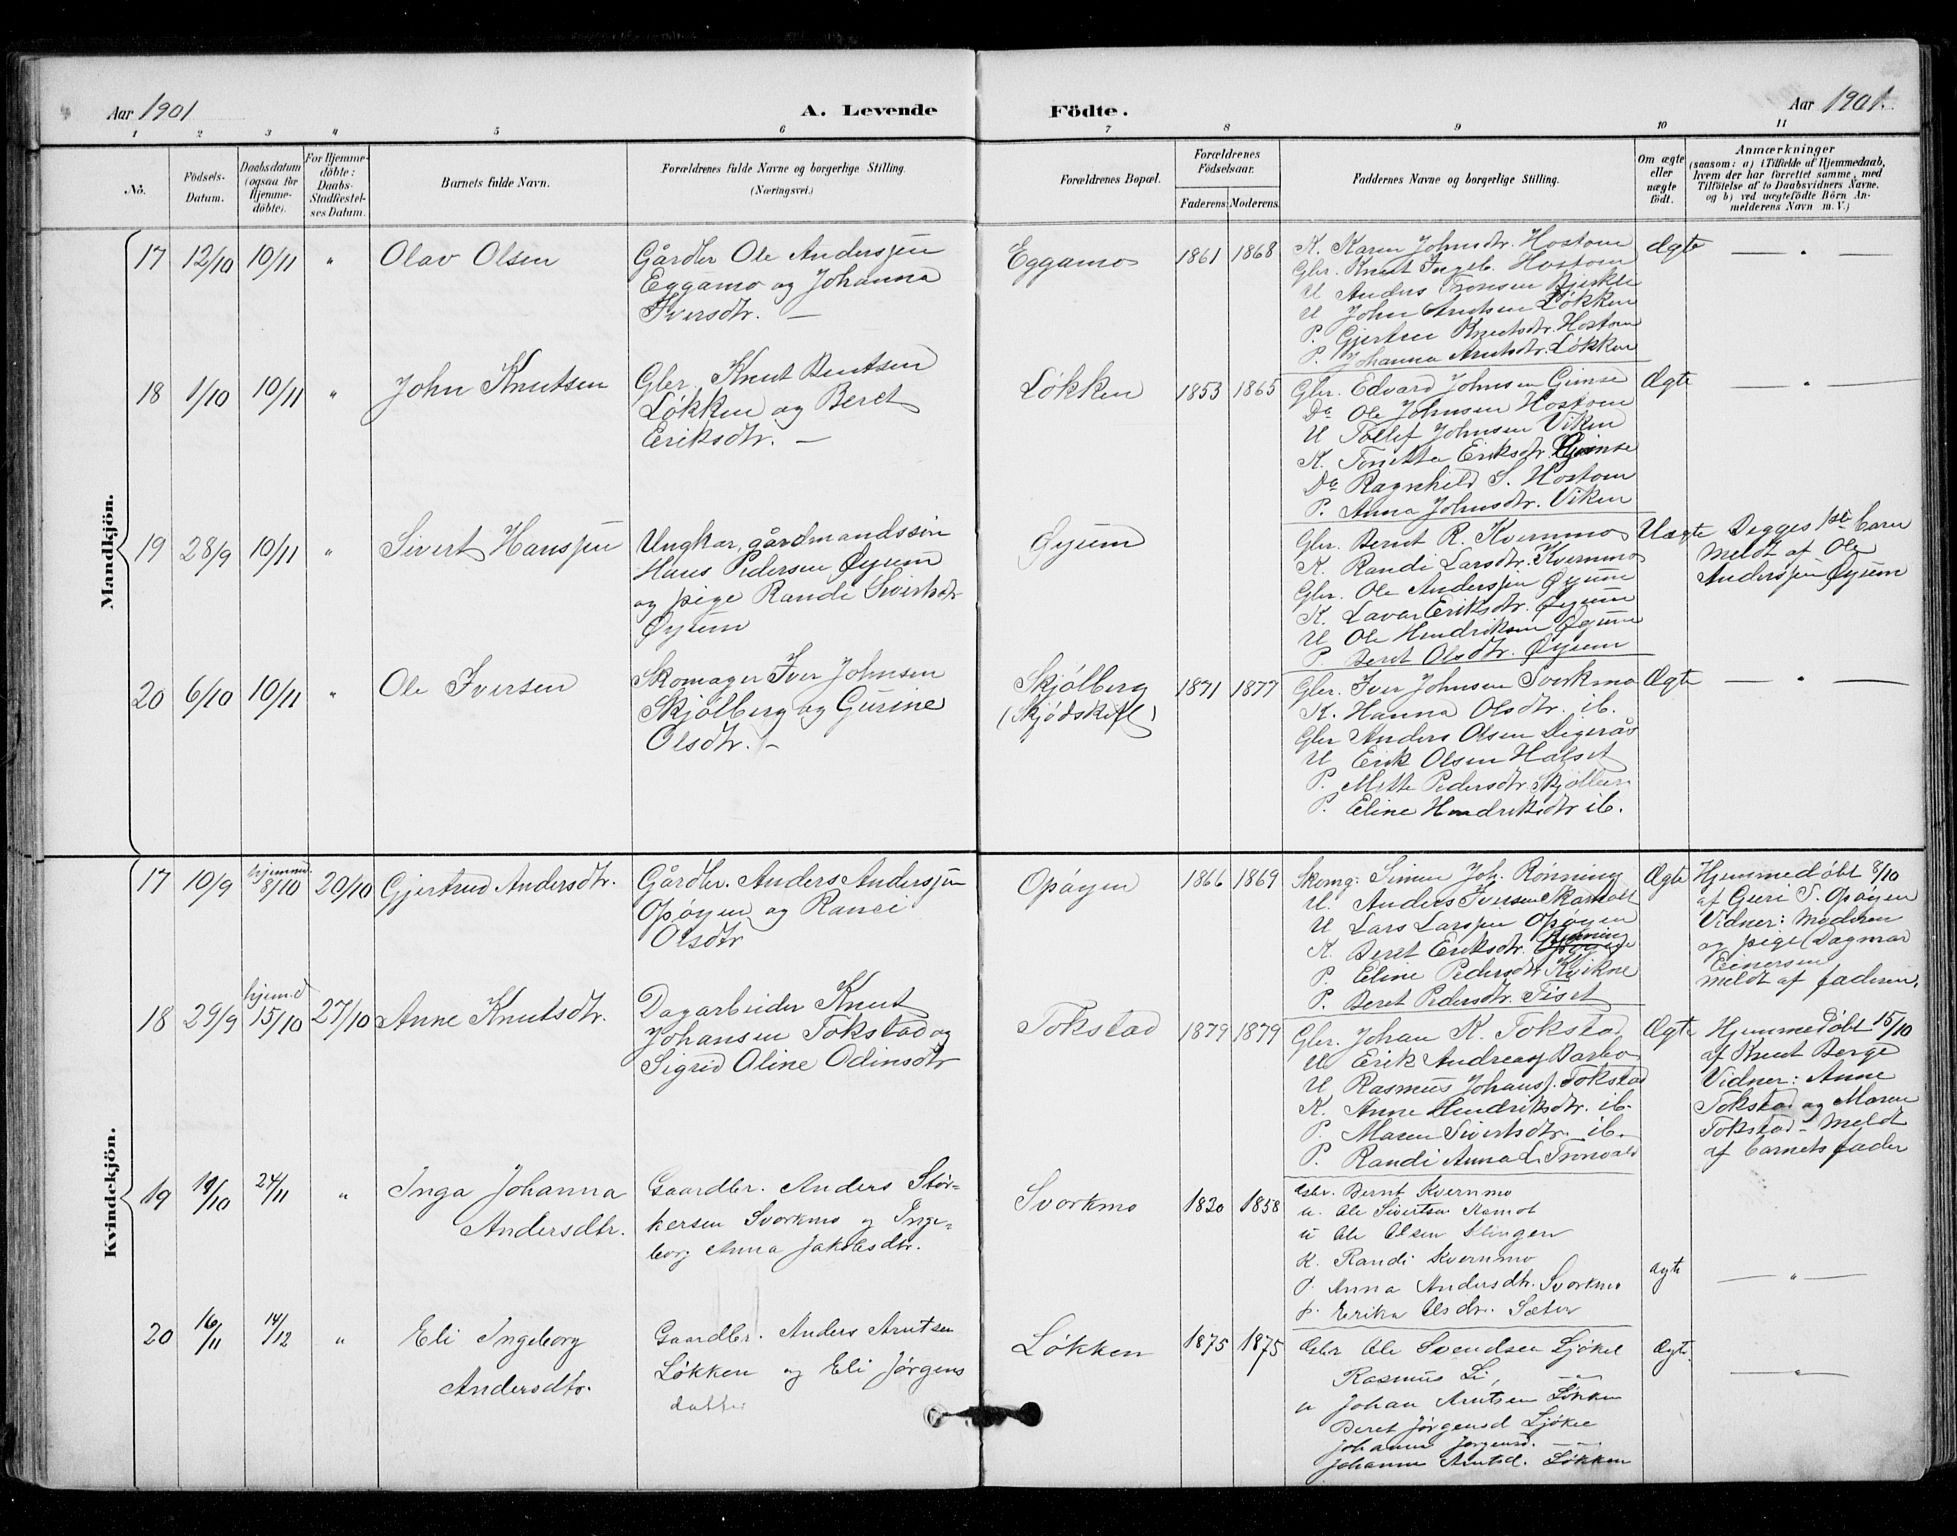 Aar 1901
A. Levende
Födte.
Aar 1901.
1 2 3 4 5 6 7 8 9 10 11
No.
Födsels-Datum.
Daabsdatum (ogsaa for Hjemme-döbte).
For Hjemme-döbte: Daabs-Stadfæstel-ses Datum.
Barnets fulde Navn.
Forældrenes fulde Navne og borgerlige Stilling.
(Næringsvei.)
Forældrenes Bopæl.
Forældrenes Födselsaar.
Faderens. Moderens.
Faddernes Navne og borgerlige Stilling.
Om ægte eller uægte födt.
Anmærkninger
(saasom: a) i Tilfælde af Hjemmedaab,
hvem der har forrettet samme, med
Tilföielse af to Daabsvidners Navne,
og b) ved uægtefödte Börn An-
melderens Navn m. V.)
Mandkjön.
17 12/10 10/11 " Olav Olsen
Gårdbr Ole Anderssen
Eggamo og Johanna
Iversdtr. —
Eggamo 1861 1868
K. Karen Johnsdtr. Hostom
Gbr. Knut Ingeb. Hostom
U Anders Tronsen Bjerkli
U John Arntsen Løkken
P. Gjertru Knutsdtr. Hostom
P. Johanna Arntsdtr. Løkken
Ægte — " —
18 1/10 10/11 " John Knutsen
Gbr. Knut Bentsen
Løkken og Beret
Eriksdtr. —
Løkken 1853 1865
Gbr. Edvard Johnsen Gimse
Do Ole Johnsen Hostom
U Tollef Johnsen Viken
K. Tonetta Eriksdtr. Gimse
Do Ragnhild S. Hostom
P. Anna Johnsdtr. Viken
Ægte — " —
19 28/9 10/11 " Sivert Hanssen
Ungkar, gårdmandssøn
Hans Pedersen Øyum
og pige Randi Sivertsdtr
Øyum
Øyum
Gbr. Bernt R. Kvernmo
K. Randi Larsdtr. Kvernmo
Gbr. Ole Anderssen Øyum
K. Lava Eriksdtr. Øyum
U Ole Hendriksen Øyum
P. Beret Olsdtr. Øyum
Uægte
Begges 1ste barn
meldt af Ole
Anderssen Øyum
20 6/10 10/11 " Ole Iversen
Skomager Iver Johnsen
Skjølberg og Gurine
Olsdtr. —
Skjølberg
(Skjødskift)
1871 1877
Gbr. Iver Johnsen Svorkmo
K. Hanna Olsdtr. ib.
Gbr Anders Olsen Digerås
U Erik Olsen Halset
P. Mette Pedersdtr. Skjølberg
P. Eline Hendriksdtr ib.
Ægte — " —
Kvindekjön.
17 10/9 hjemmed 8/10 20/10 Gjertrud Andersdtr.
Gårdbr. Anders Anderssen
Opøyen og Ranei
Olsdtr
Opøyen 1866 1869
Skomg: Simen Joh. Rønning
U. Anders Iversen
U Lars Larssen Opøyen
K. Beret Eriksdtr. Rønning
P. Eline Pedersdtr Kvikne
P. Beret Pedersdtr. Fiset
Ægte
Hjemmedøbt 8/10
af Guri T. Opøyen
Vidner: Moderen
og pige Dagmar
Einersen
meldt af faderen.
18 29/9 hjem.d 15/10 27/10 Anne Knutsdtr.
Dagarbeider Knut
Johansen Tokstad og
Sigrid Oline Odinsdtr
Tokstad 1879 1879
Gbr. Johan K. Tokstad
U Erik Andreas Barbo
U Rasmus Johans. Tokstad
K. Anne Hendriksdtr. ib.
P. Maren Sivertsdtr. ib.
P. Randi Anna L. Tronvold
Ægte
Hjemmedøbt 15/10
af Knut Berge
Vidner: Anne
Tokstad og Maren
Tokstad - Meldt
af barnets fader
19 19/10 24/11 " Inga Johanna
Andersdtr.
Gaardbr. Anders Stør-
kersen Svorkmo og Inge-
borg Anna Jakobsdtr.
Svorkmo 1820 1858
Gbr. Bernt Kvernmo
u. Ole Sivertsen Komot
u Ole Olsen Slingen
K. Randi Kvernmo
P. Anna Andersdtr. Svorkmo
p. Erika Olsdtr. Sæter
Ægte — " —
20 16/11 14/12 " Eli Ingeborg
Andersdtr.
Gaardbr. Anders Arntsen
Løkken og Eli Jørgens
datter
Løkken 1875 1875
Gbr Ole Svendsen Ljøkel
Rasmus Li, —
u Johan Arntsen Løkken
Beret Jørgensd Ljøkel
Johanna Jørgensd. — —
Johanna Arntsd. Løkken
Ægte. — " —